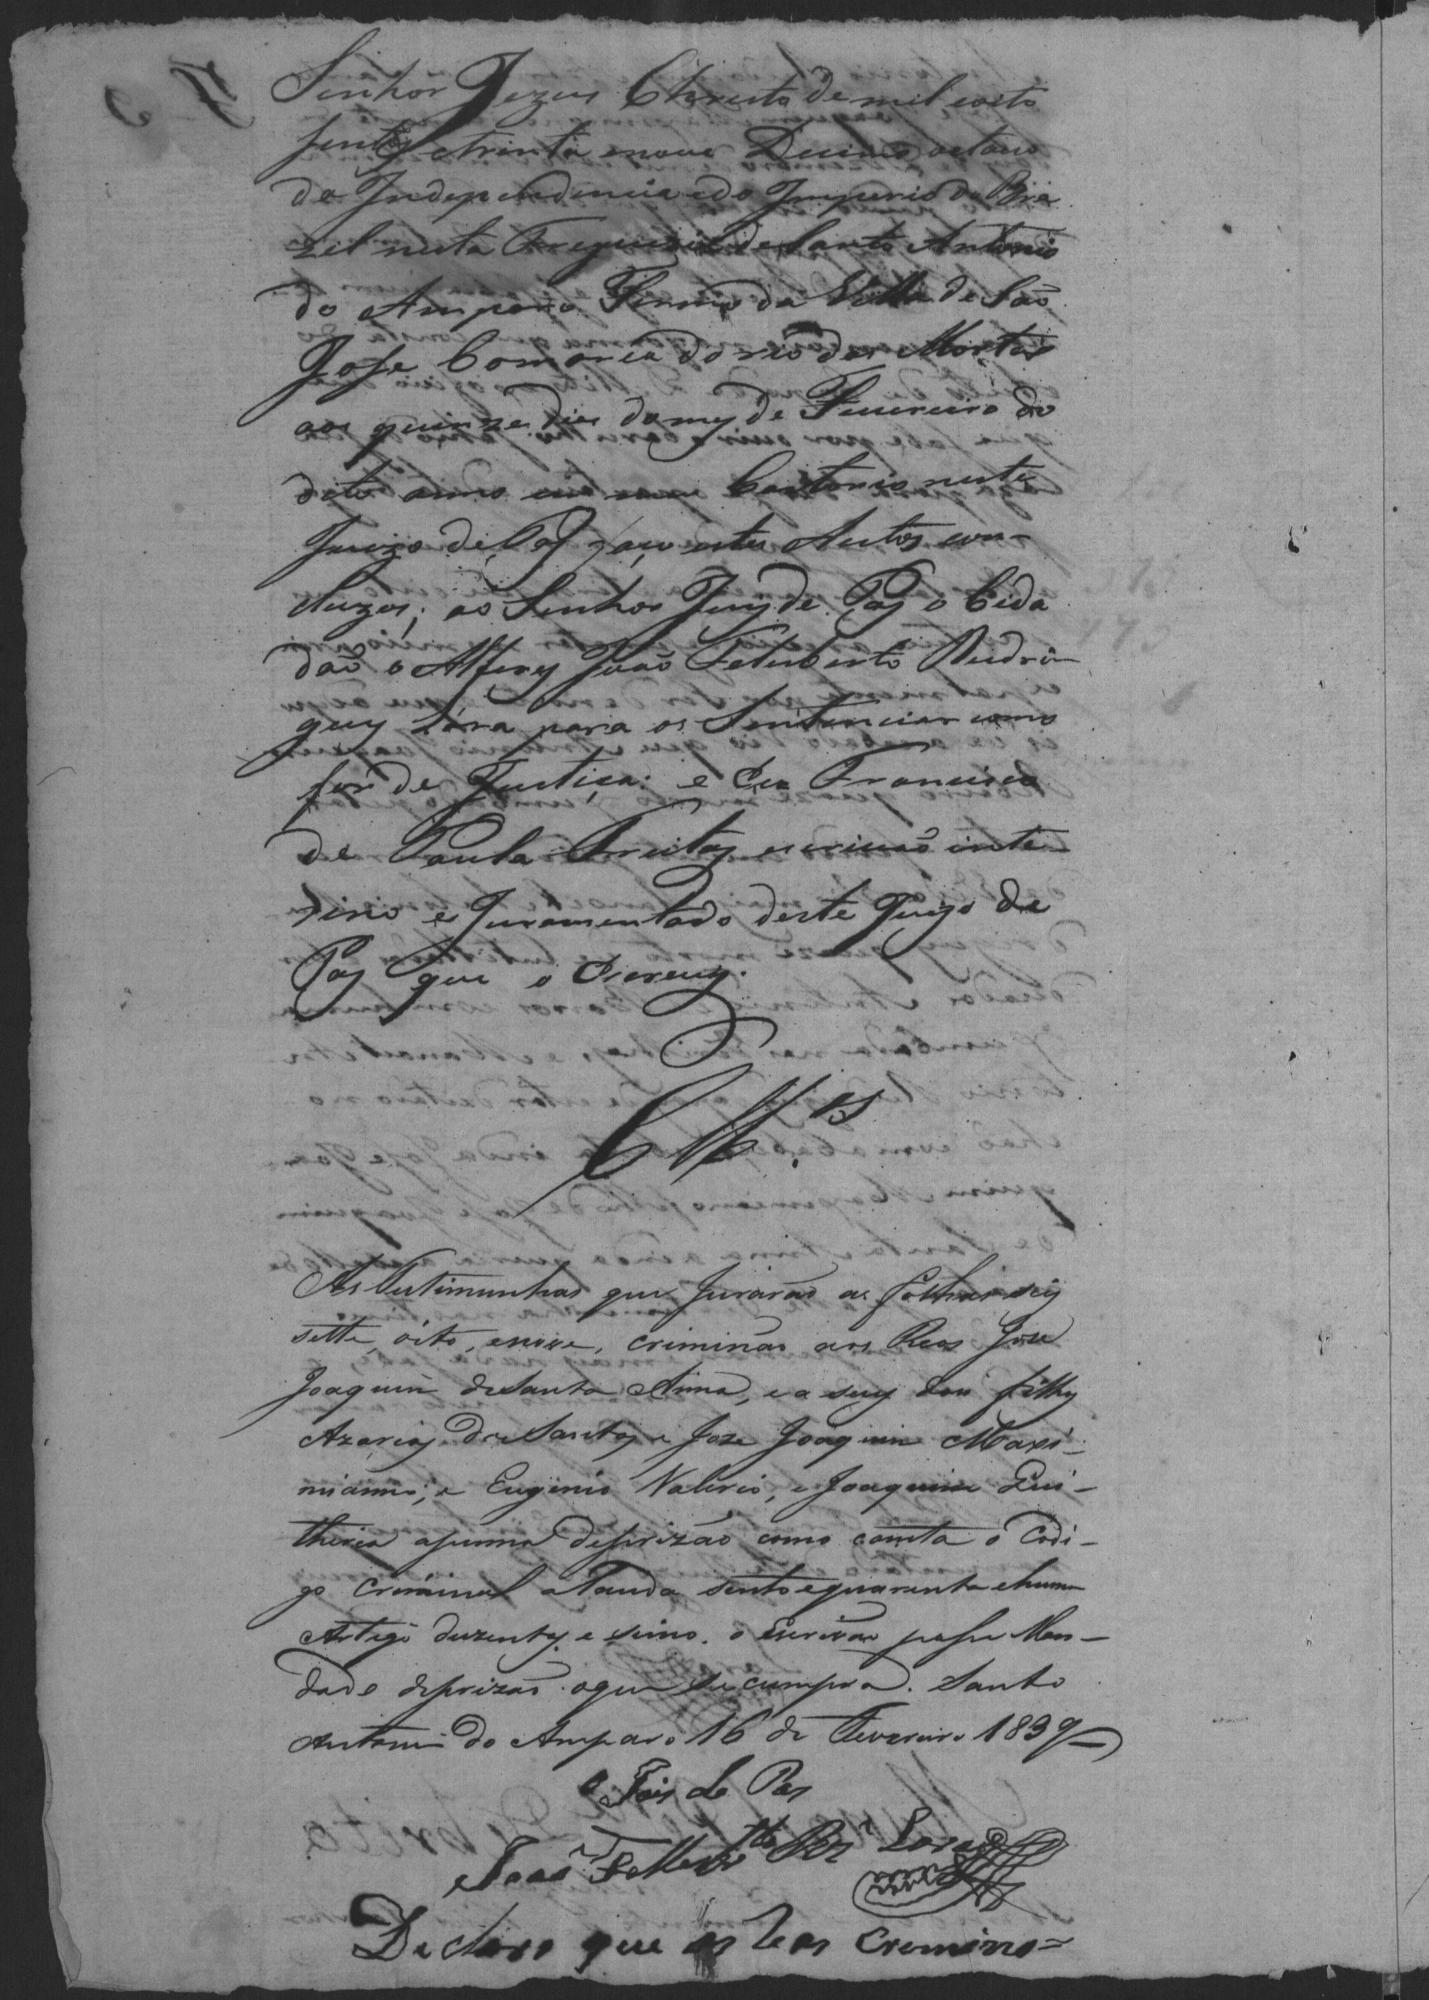 Senhor Jezus Christo de mil e oito
sentos e trinta e nove Decimo oitavo
da Independencia e do Imperio do Bra
zil nesta Freguezia de Santo Antonio
do Amparo Termo da Villa de São
Joze Comarca do rio das Mortes
aos quinze dias do mez de Fevereiro do
dito anno em meu Cartorio neste
Juizo de Paz faço estes Autos con-
cluzos, ao Senhor Juiz de Paz o Cida
dão o Alferes João Feliberto Rudri-
guez Lara para os Sentenciar como
for de Justiça: e Eu Francisco
de Paula Freitas escrivão inte-
rino e Juramentado deste Juizo de
Paz que o Escrevy.
Cllos
As Testimunhas que Jurarão as folhas seis
sette, oito, enove, criminão aos Reos Joze
Joaquim de Santa Anna, e a seus dous filhos
Azarias dos Santos e Joze Joaquim Maxi-
mianno; e Eugenio Valerio, e Joaquim Leu-
theria apenna de prizão como consta o Codi-
go criminal a Tauda sento e quarenta e hum
Artigo duzentos e sinco. o Escrivão passe Man-
dado de prizão. o que se cumpra. Santo
Antonio do Amparo 16 de Fevereiro 1839
o Juis de Pas
João Felleberto Roz Lara
Declaro que os Reos Cremino=